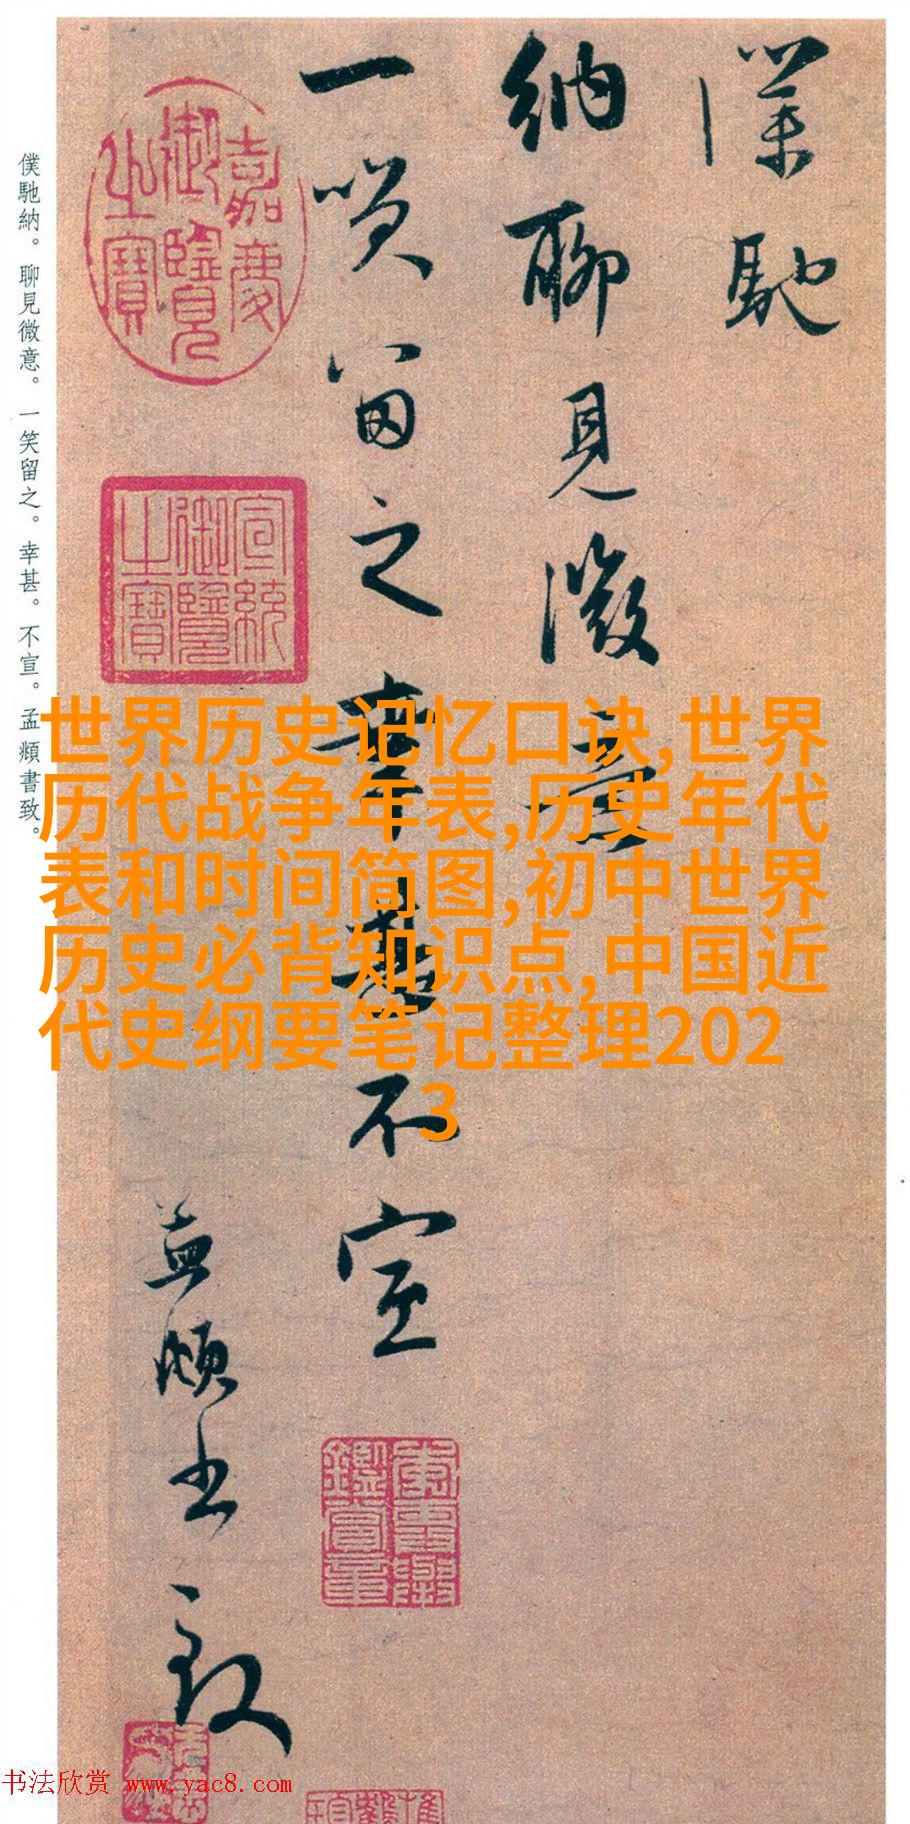 僕馳
納聊見微意
一笑留之幸甚不宣
孟頫書致
嘉慶
御覽
之寶
宣統
御覽
之寶
僕馳納。聊見微意。一笑留之。幸甚。不宣。孟頫書致。
世界历史记忆口诀,世界
历代战争年表,历史年代
表和时间简图,初中世界
历史必背知识点,中国近
代史纲要笔记整理202
3
书法欣赏 www.yac8.com